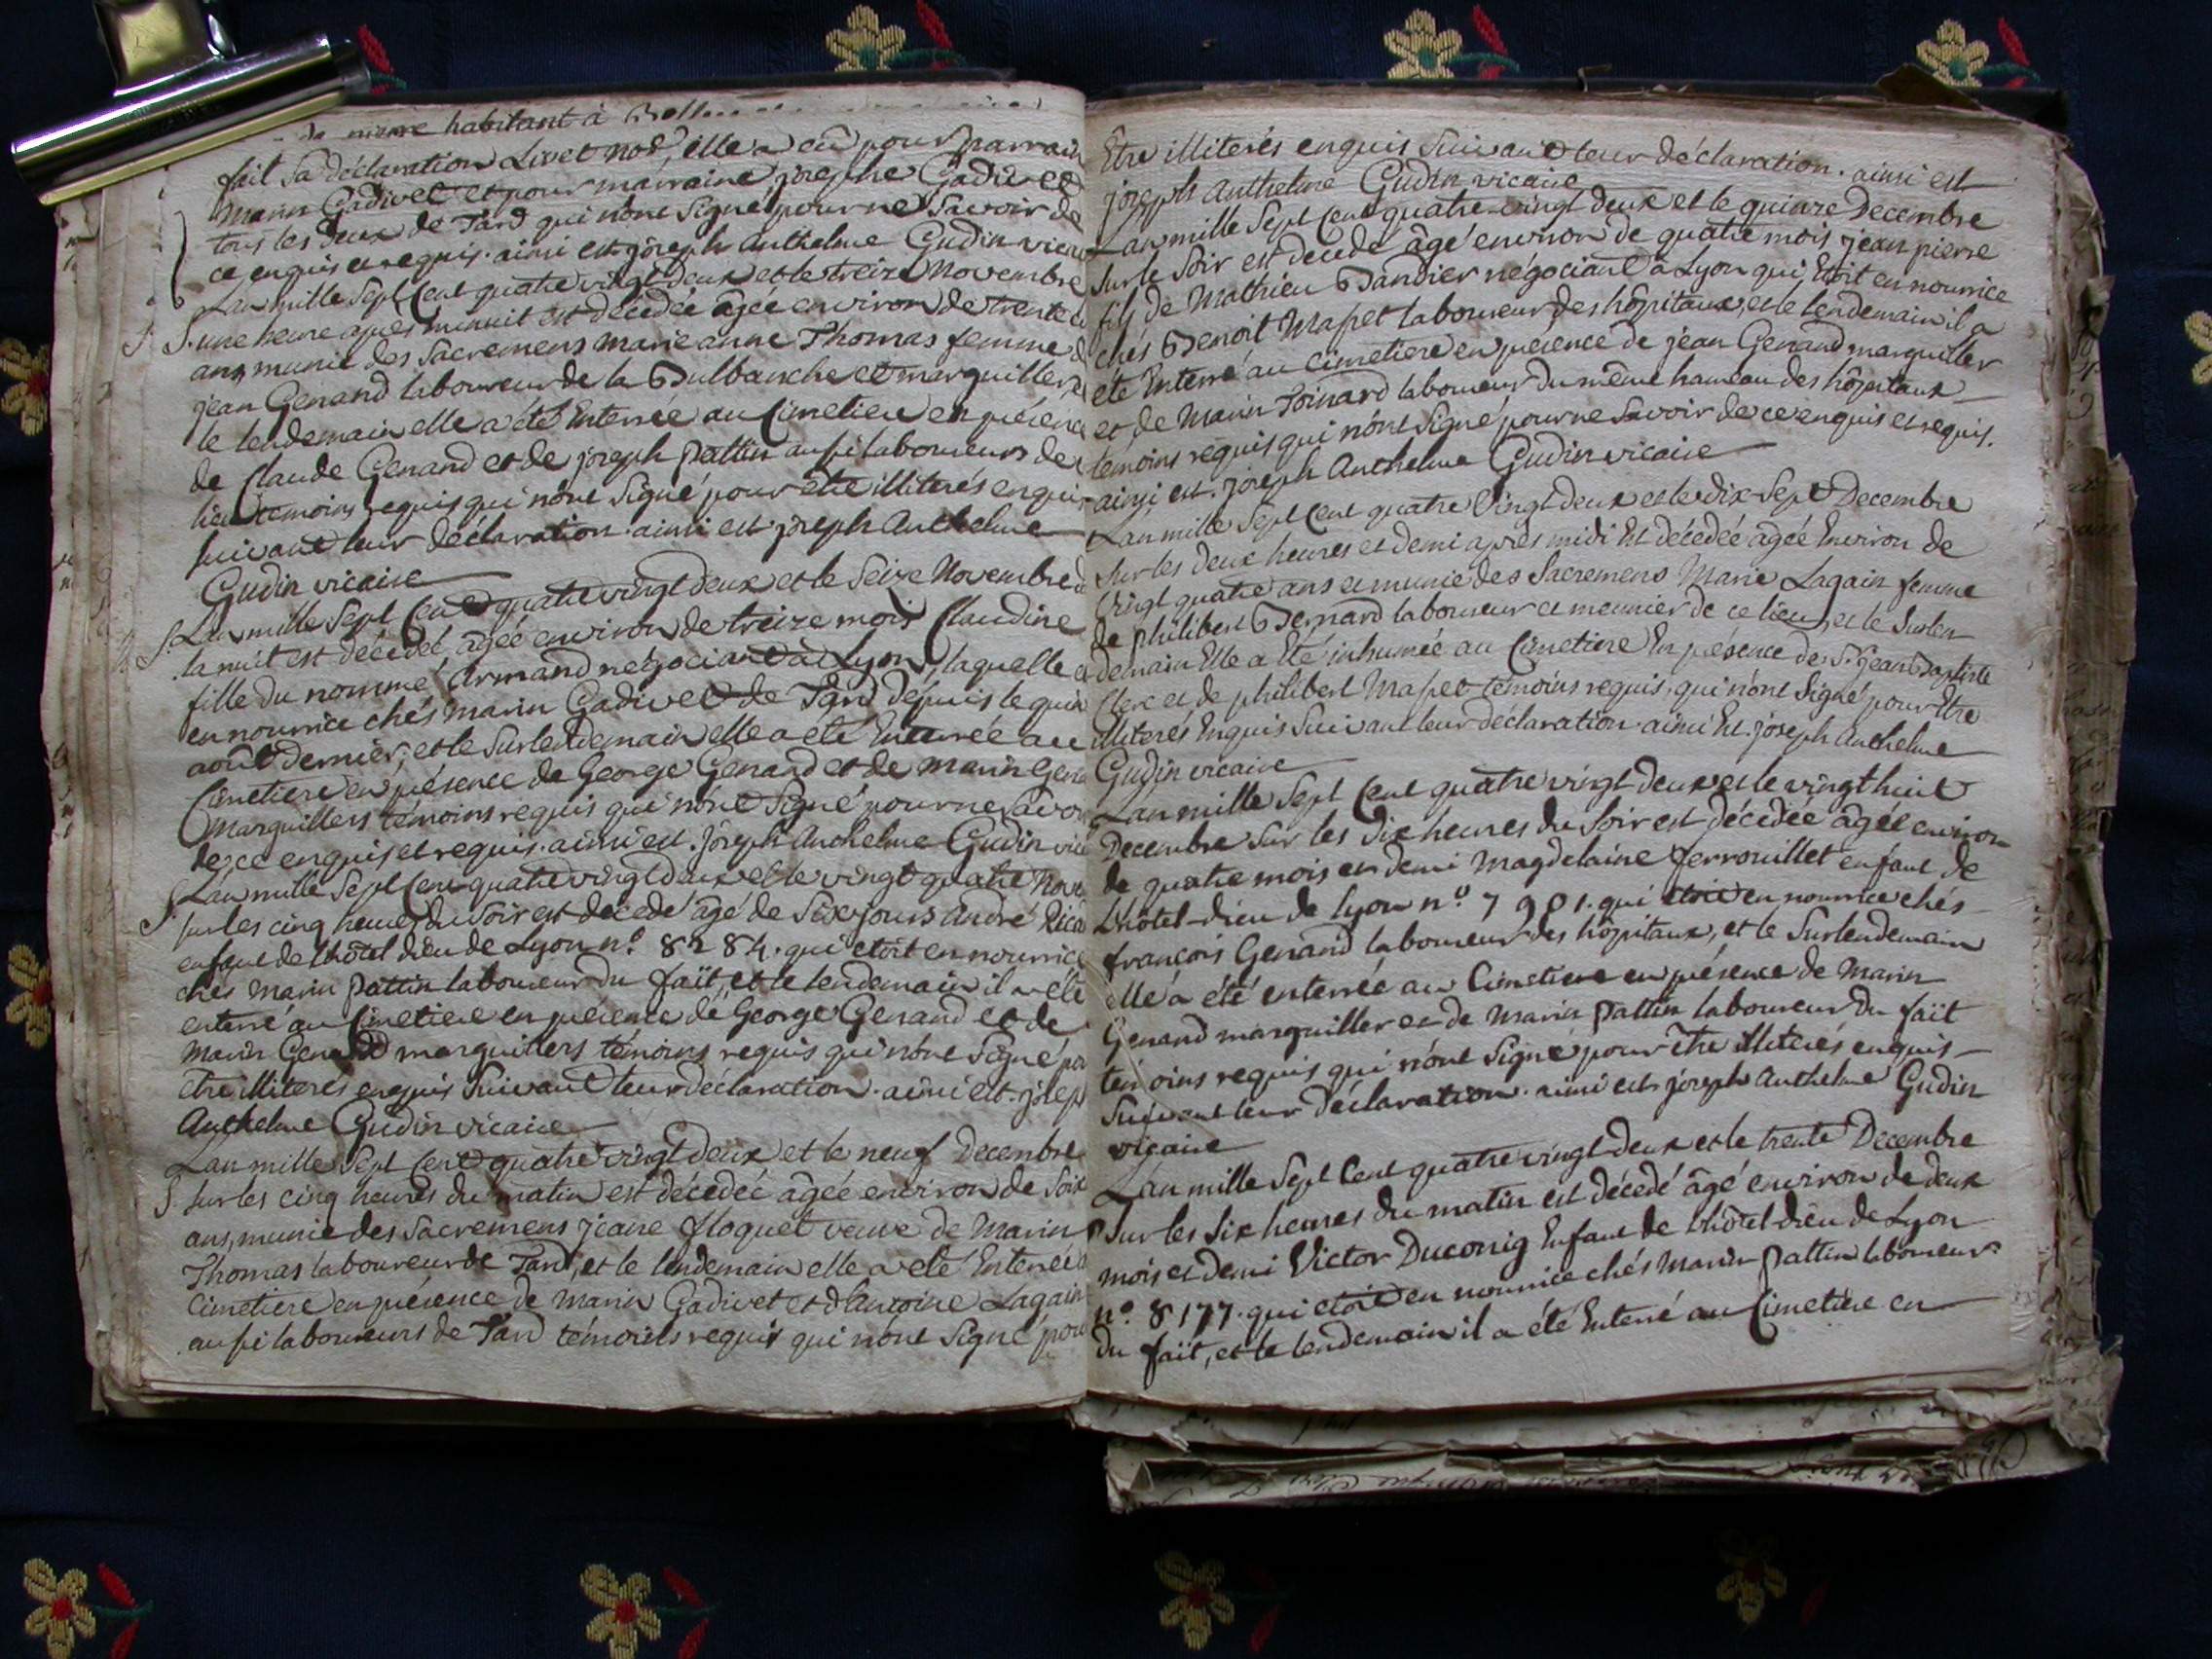 de mere habitant à
fait sa déclaration Livet nod, elle a eû pour parrain
marin Gadivet et pour marraine josephe Gadivet
tous les deux de Tard qui nont signé pour ne savoir de
ce enquis et requis. ainsi est joseph anthelme Gudin vicai
L'an mille sept cent quatre vingt deux et le treize Novembre
S. une heure après minuit est décedée âgée environ de trente
ans munie des sacremens marie anne Thomas femme d
jean Genand laboureur de la Bulbanche et marguiller
le lendemain elle a été Enterrée au Cimetiere en présenc
de Claude Genand et de joseph pattin aussi laboureurs de
lieu temoins requis qui n'ont signé pour être illiterés enquis
suivant leur déclaration. ainsi est joseph Anthelme
Gudin vicaire
S. L'an mille sept cent quatre vingt deux et le seize Novembre
la nuit est décedeé agée environ de treize mois Claudine
fille du nommé Armand négociant à Lyon, laquelle
en nourrice chés marin Gadivet de Tard depuis le quin
août dernier, et le surlendemain elle a été Enterrée au
Cimetiere en présence de George Genand et de marin Gena
Marguillers témoins requis qui n'ont signé pour ne savoir
de ce enquis et requis. ainsi est. joseph Anthelme Gudin vic
S. L'an mille sept cent quatre vingt deux et le vingt quatre Nov
sur les cinq heures du soir est décedé âgé de six jours andré
enfant de lhôtel dieu de Lyon n.º 8284. qui etoit en nourrice
chés Marin pattin laboureur du fait, et le lendemain il a été
enterré au Cimetiere en présence de George Genand et de
Marin Genand marguillers témoins requis qui n'ont signé po
être illiterés enquis suivant leur déclaration. ainsi est. josep
Anthelme Gudin vicaire
L'an mille sept cent quatre vingt deux et le neuf Decembre
S. sur les cinq heures du matin est décedeé âgée environ de soix
ans, munie des sacremens jeane floquet veuve de Marin
Thomas laboureur de Tard, et le lendemain elle a été Enterrée
Cimetiere en présence de marin Gadivet et d'Antoine Lagain
aussi laboureurs de Tard témoins requis qui n'ont signé pou
Etre illiterés enquis suivant leur déclaration. ainsi est
joseph Anthelme Gudin vicaire
L'an mille sept cent quatre vingt deux et le quinze Decembre
sur le soir est decedé âgé environ de quatre mois jean pierre
fils de Mathieu Bandier négociant à Lyon qui Etoit en nourrice
chés Benoit Mapet laboureur des hôpitaux, et le lendemain il a
été Enterré au cimetiere en présence de jean Genand marguiller
et de Marin Toinard laboureur du même hameau des hôpitaux
témoins requis qui n'ont signé pour ne savoir de ce enquis et requis.
ainsi est. joseph Anthelme Gudin vicaire
L'an mille sept cent quatre Vingt deux et le dix-sept Decembre
sur les deux heures et demi après midi Est décedeé âgée Environ de
Vingt quatre ans et munie des Sacremens Marie Lagain femme
de philibert Bernard laboureur et meunier de ce lieu, et le surlen
demain Elle a Eté inhumée au Cimetiere En présence de Sr jean Baptiste
Clerc et de philibert Mapet témoins requis, qui n'ont signé pour Etre
illiterés Enquis suivant leur déclaration. ainsi Est. joseph Anthelme
Gudin vicaire
L'an mille sept cent quatre vingt deux et le vingt huit
Decembre sur les dix heures du soir est décedée âgée environ
de quatre mois et demi Magdelaine ferrouillet enfant de
L'hôtel-dieu de lyon n.º 7901. qui etoit en nourrice chés
françois Genand laboureur des hôpitaux, et le Surlendemain
elle a été enterrée au Cimetiere en présence de Marin
Genand marguiller et de Marin pattin laboureur du fait
témoins requis qui n'ont signé pour être illiterés enquis
suivant leur déclaration. ainsi est joseph Anthelme Gudin
vicaire
L'an mille sept cent quatre vingt deux et le trente Decembre
Sur les six heures du matin est décedé âgé environ de deux
mois et demi Victor Duconig Enfant de l'hôtel-dieu de Lyon
n.º 8177. qui etoit en nourrice chés Marin pattin laboureur
du fait, et le lendemain il a été Enterré au Cimetiere en